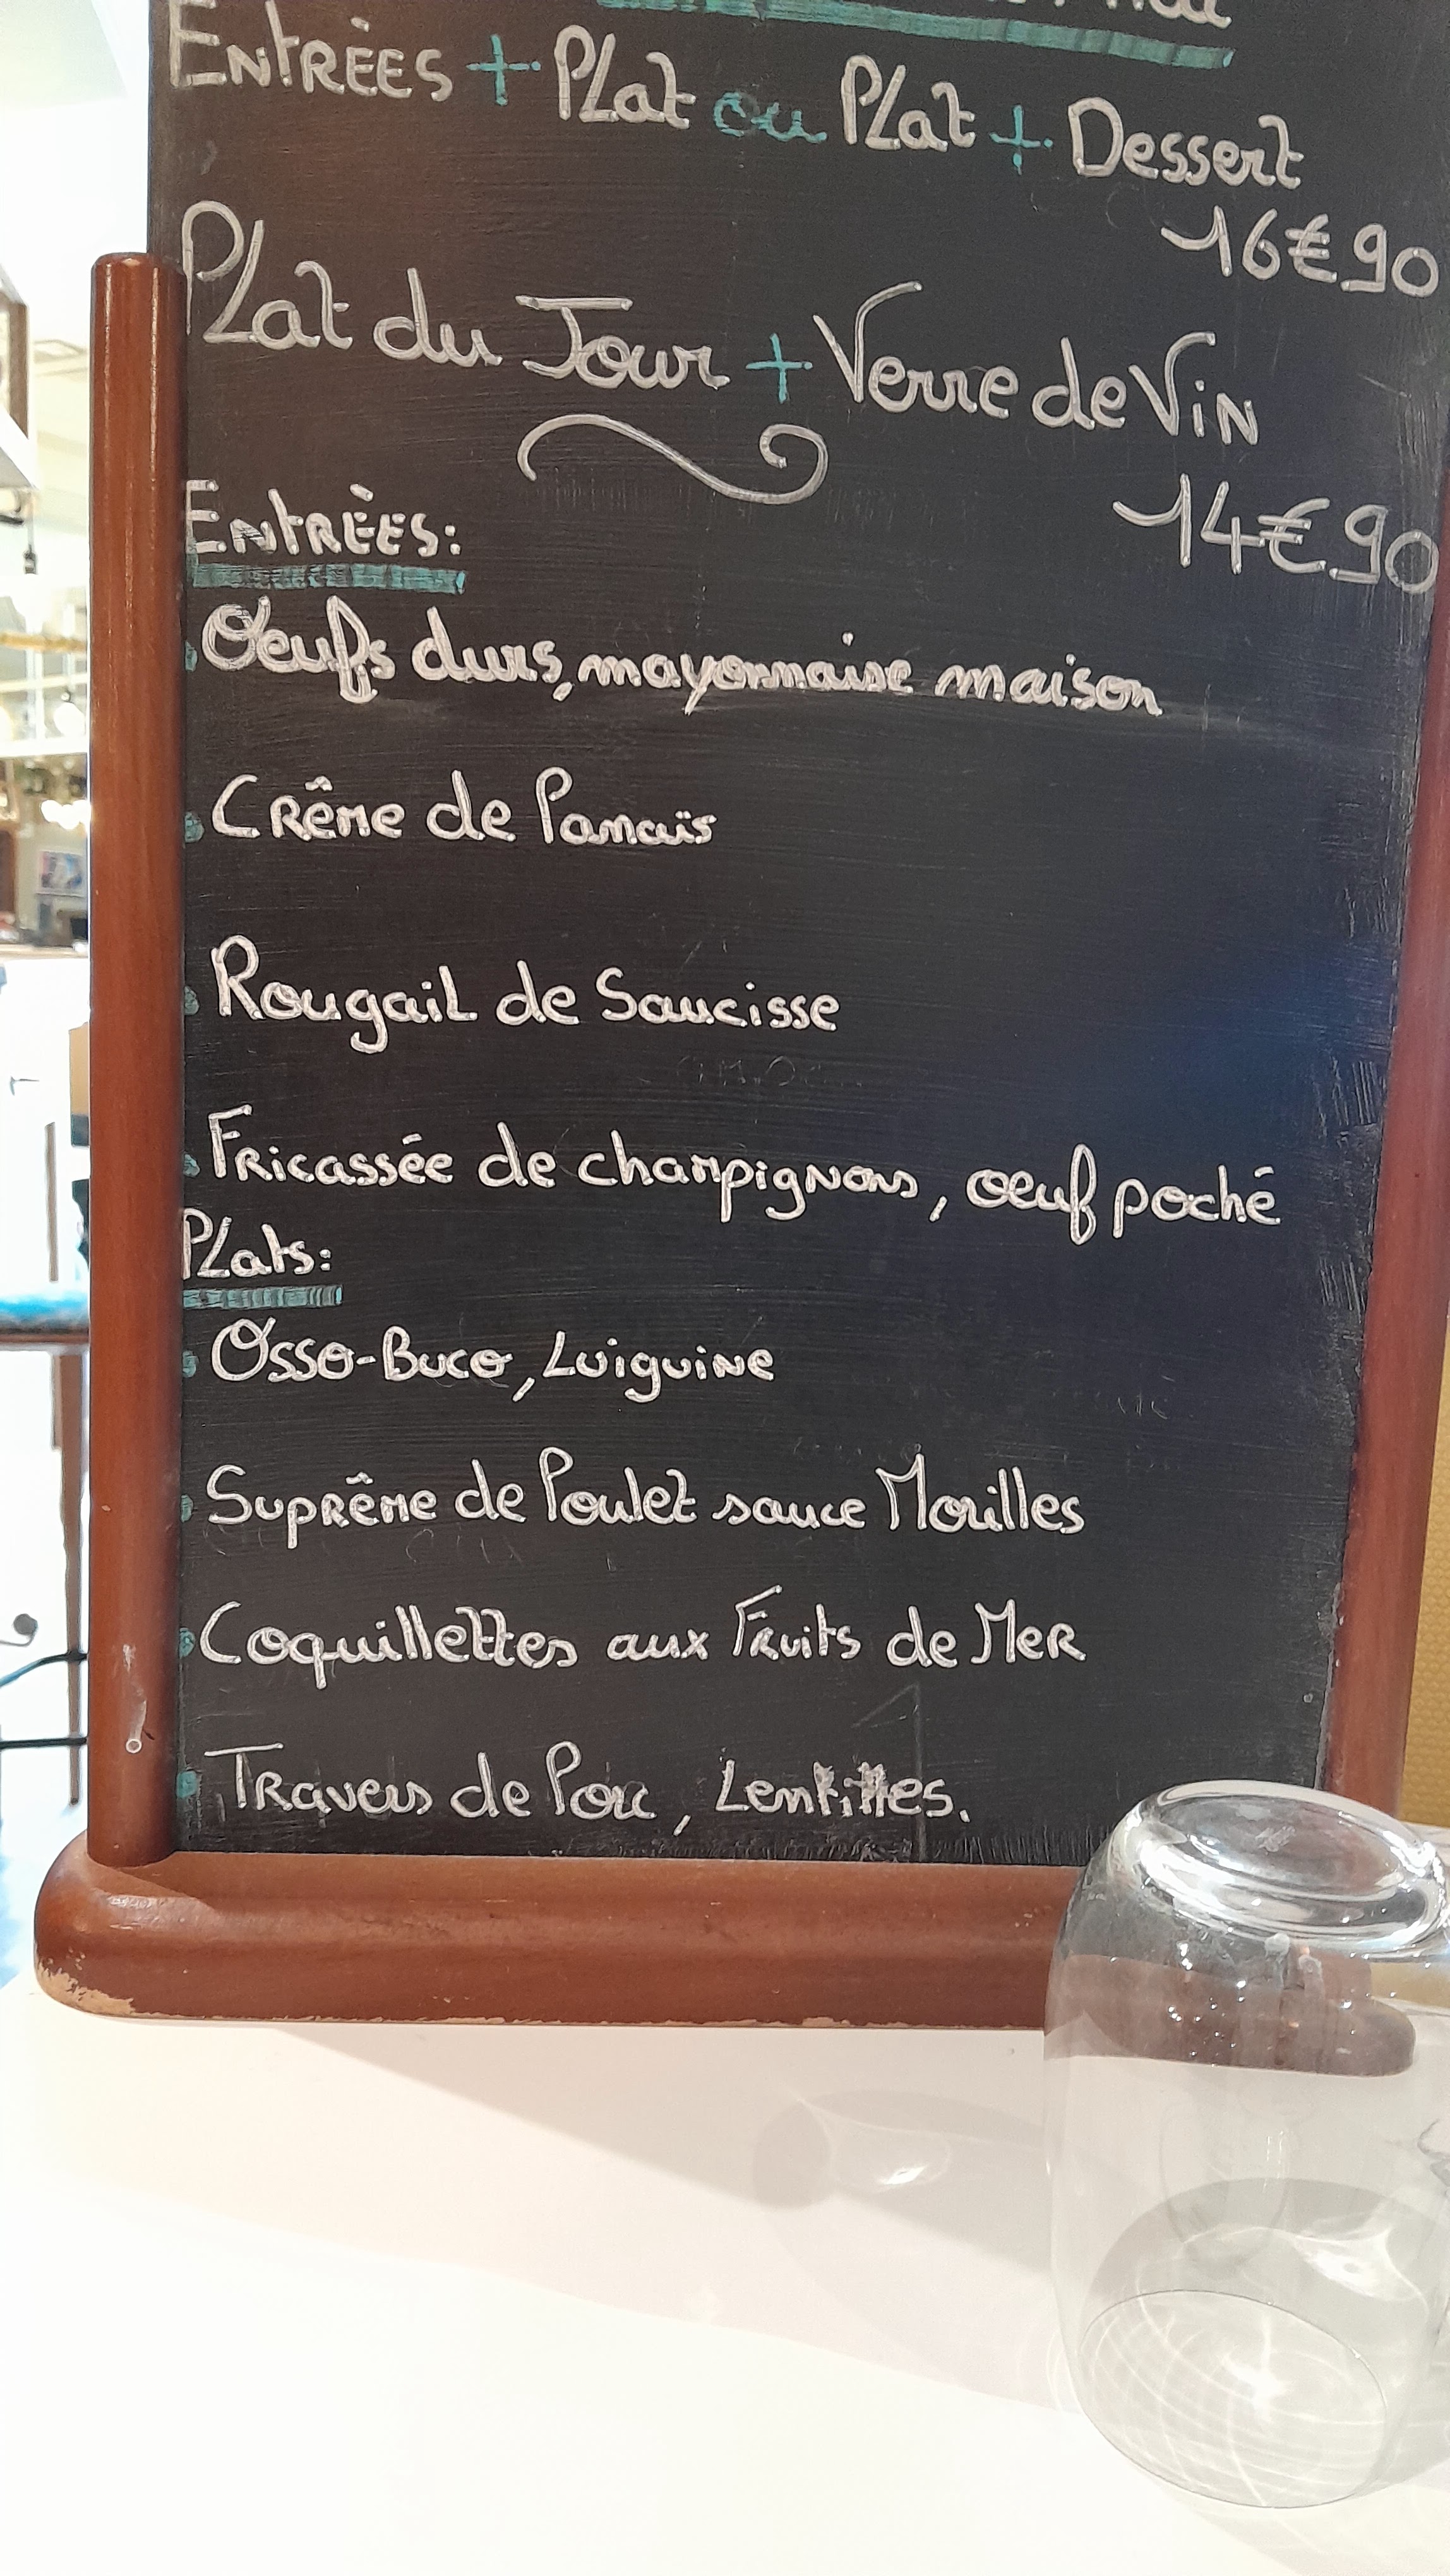 Entrèes + Plat ou Plat + Dessert
16€90
Plat du Jour + Verre de Vin
14€90
Entrèes:
Oeufs durs, mayonnaise maison
Crême de Panaïs
Rougail de Saucisse
Fricassée de champignons, oeuf poché
Plats:
Osso-Buco, Luiguine
Suprême de Poulet sauce Morilles
Coquillettes aux Fruits de Mer
Travers de Porc, Lentilles.